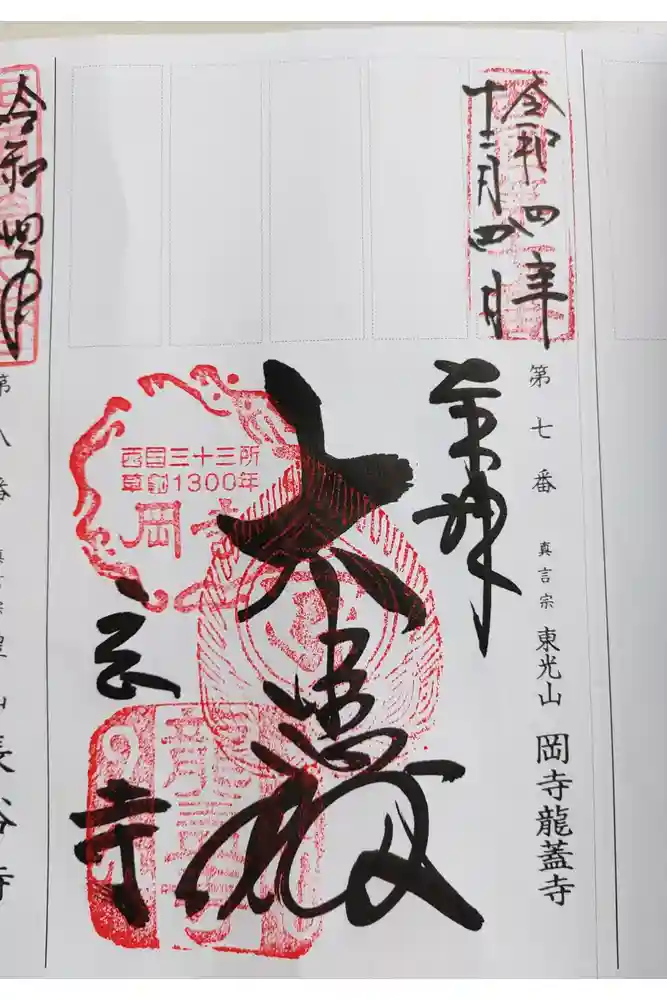 令和四年
十二月四日
第七番 真言宗 東光山 岡寺龍蓋寺
奉拝
大悲殿
西国三十三所
草創1300年
岡寺
寺
令和四年
第八番 真言宗 豊山 長谷寺